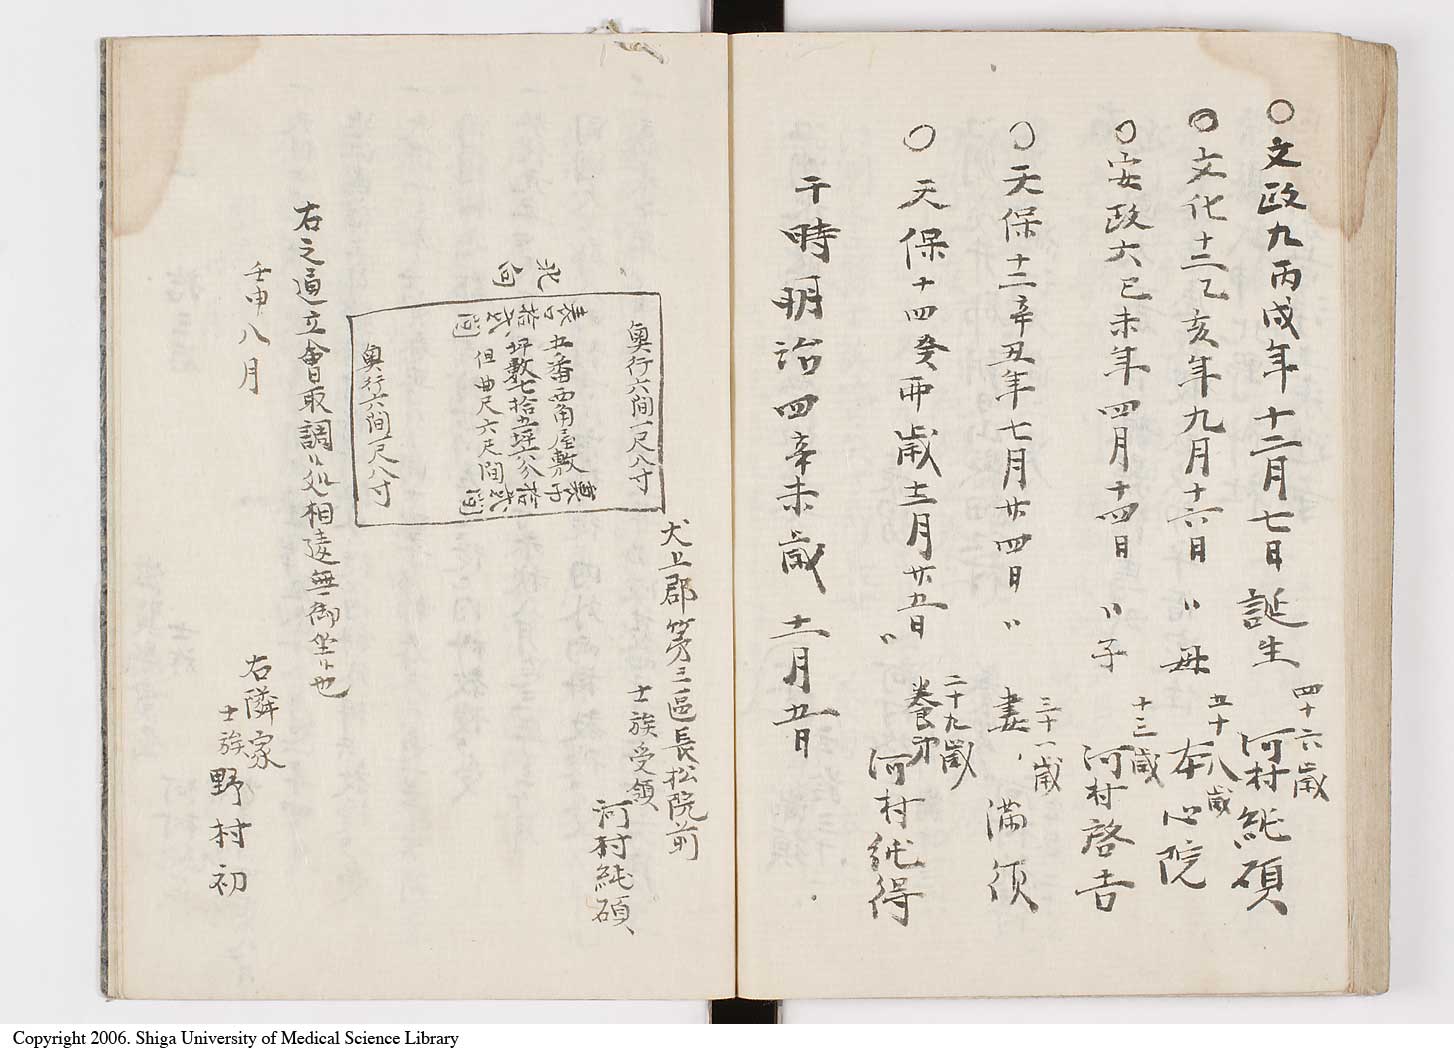 ○文政九丙戌年十二月七日誕生 四十六歳 河村純碩
○文化十二乙亥年九月十六日〃母 五十八歳 本心院
○安政六己未年四月十四日〃子 十三歳 河村啓吉
○天保十二辛丑年七月廿四日〃妻 三十一歳 満須
○天保十四癸卯歳十二月廿五日〃養弟 二十九歳 河村純得
于時明治四辛未歳十一月五日
犬上郡第三區長松院前
士族受領
河村純碩
北向
奥行六間一尺八寸
表口拾弐間
五番西角屋敷
坪数七拾五坪六分
但曲尺六尺間
裏巾拾弐間
奥行六間一尺八寸
右之通立會取調候処相違無御坐候也
壬申八月
右隣家
士族 野村初
Copyright 2006. Shiga University of Medical Science Library